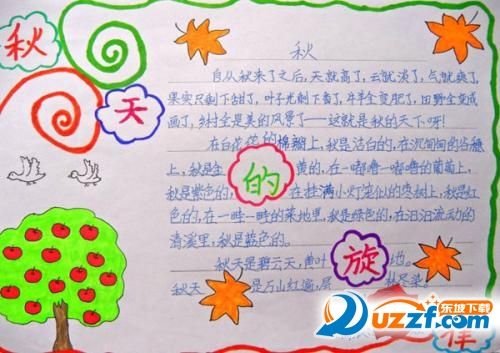 秋
天
的
旋
律
秋
自从秋来了之后,天就高了,云就淡了,气就爽了,
果实只剩下甜了,叶子光剩下香了,牛羊全变肥了,田野全变成
画了,乡村全是美的风景了——这就是秋的天下呀!
在白花花的棉瓣上,秋是洁白的,在沉甸甸的谷穗
上,秋是金黄的,在一嘟噜一嘟噜的葡萄上,
秋是紫色的,在挂满小灯笼似的枣树上,秋是红
色的,在一畦一畦的菜地里,秋是绿色的,在汩汩流动的
清溪里,秋是蓝色的。
秋天是碧云天,黄叶地。
秋天是万山红遍,层林尽染。
东坡下载
uzzf.com